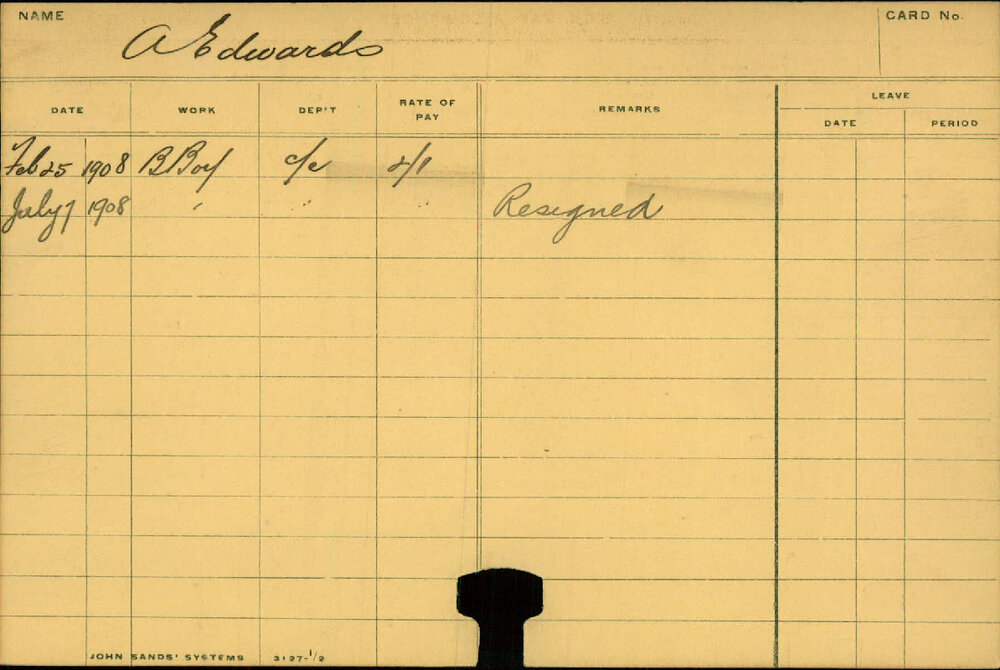 NAME
A Edwards
CARD No.
DATE WORK DEP'T RATE OF PAY REMARKS LEAVE
DATE PERIOD
Feb 25 1908 B Boy c/c 2/1
July 7 1908 " " " Resigned
JOHN SANDS' SYSTEMS 3127-1/2